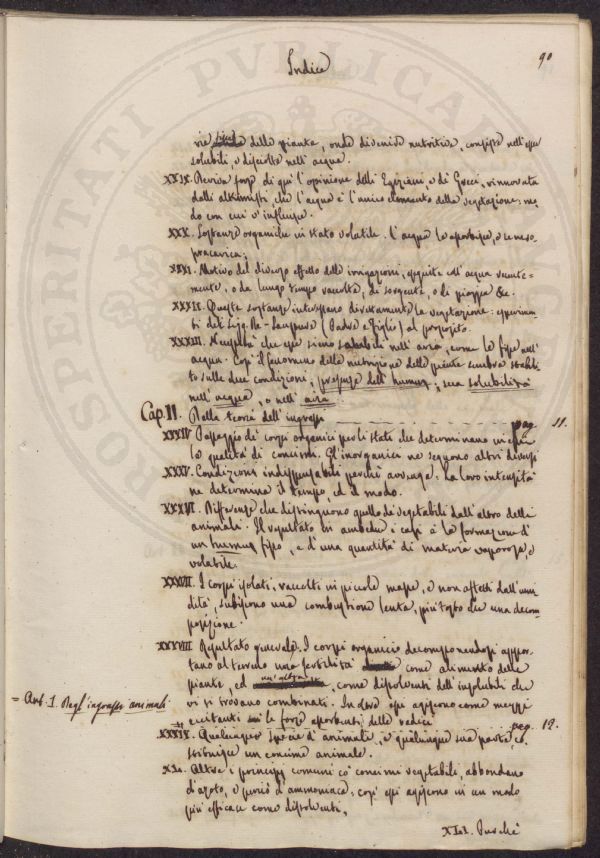 90
Indice
vie della pianta, onde divenire nutritive, consiste nell'esser
solubili, e disciolte nell'acqua.
XXIX. Deriva forse di qui l'opinione delli Egiziani, e di Greci, rinnovata
dalli alchimisti, che l'acqua è l'unico elemento della vegetazione: mo-
do con cui v'influisce.
XXX. Sostanze organiche in stato volatile. l'acqua le assorbisce, e se ne so-
praccarica;
XXXI. Motivo del diverso effetto delle irrigazioni, eseguite coll'acqua recente-
mente, o da lungo tempo raccolta, di sorgente, o di pioggia &c.
XXXII. Queste sostanze interessano direttamente la vegetazione: esperimen-
ti del Sigg. De-Saussure (Padre e Figlio) al proposito.
XXXIII. Necessità che esse sieno solubili nell'aria, come le fisse nell'
acqua. Così il fenomeno della nutrizione delle piante sembra stabili-
to sulle due condizioni; presenza dell'humus; sua solubilità
nell'acqua, o nell'aria
Cap. II. Della teoria dell'ingrassi pag. 11.
XXXIV Passaggio de' corpi organici per li stati che determinano in essi
la qualità di concimi. Gl'inorganici ne seguono altri diversi
XXXV. Condizioni indispensabili perchè avvenga: la loro intensità
ne determina il tempo, ed il modo.
XXXVI. Differenze che distinguono quello de' vegetabili dall'altro delli
animali. Il resultato in ambedue i casi è la formazione d'
un humus fisso, e d'una quantità di materia vaporosa, e
volatile.
XXXVII. I corpi isolati, raccolti in piccole masse, e non affetti dall'umi-
dità, subiscono una combustione lenta, piuttosto che una decom-
posizione.
XXXVIII Resultato generale. I corpi organici decomponendosi appor-
tano al terreno una fertilità come alimento delle
piante, ed come dissolventi dell'insolubili che
vi si trovano combinati. In oltre essi agiscono come mezzi
eccitanti le forze assorbenti delle radici
= Art. 1. Degl'ingrassi animali pag. 12.
XXXIX. Qualunque specie d'animale, e qualunque sua parte, co-
stituisce un concime animale.
XL. Oltre i principj comuni co' concimi vegetabili, abbondano
d'azoto, e perciò d'ammoniaca: così essi agiscono in un modo
più efficace come dissolventi.
XLI. Perchè